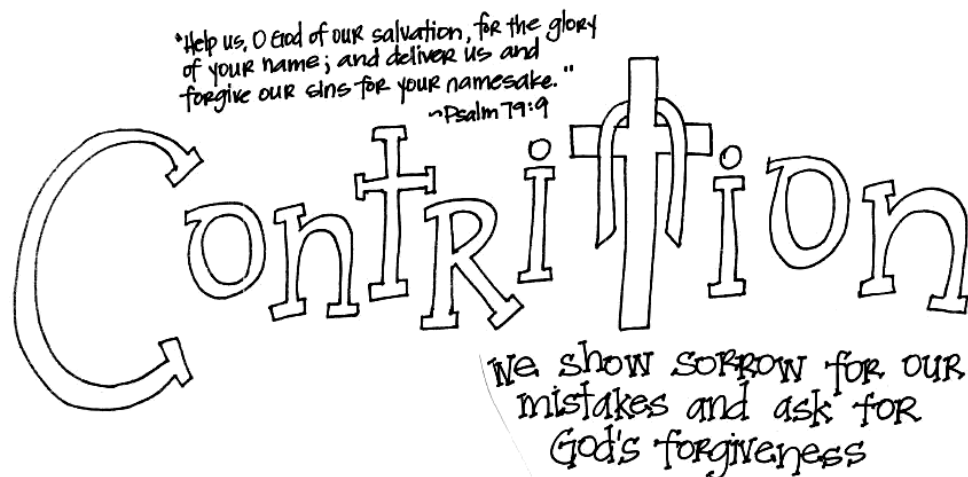 "Help us, O God of our salvation, for the glory
of your name; and deliver us and
forgive our sins for your namesake."
~Psalm 79:9
Contrition
We show sorrow for our
mistakes and ask for
God's forgiveness